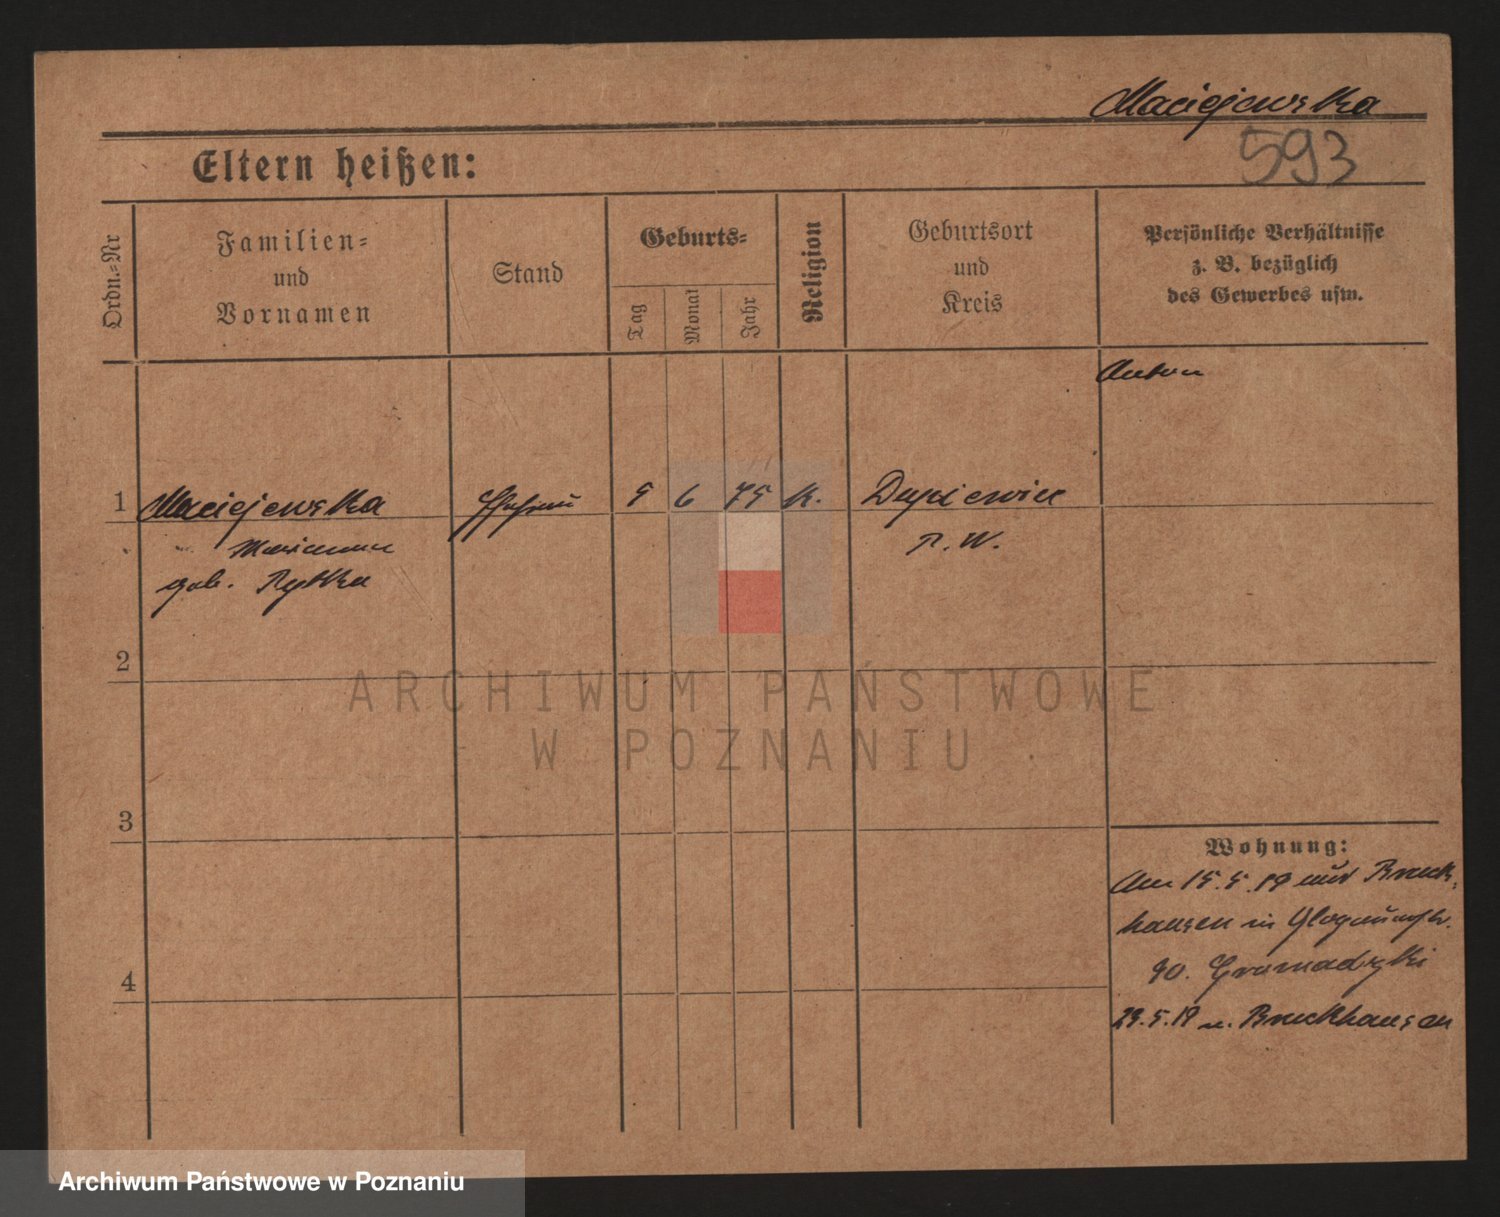 Maciejewska
593
Eltern heißen:
Ordn.=Nr
Familien=
und
Vornamen
Stand
Geburts=
Tag
Monat
Jahr
Religion
Geburtsort
und
Kreis
Persönliche Verhältnisse
z. B. bezüglich
des Gewerbes usw.
Anton
1 Maciejewska Ehefrau 5 6 75 K.
P. W.
Marianna
geb. Rybka
2
ARCHIWUM PAŃSTWOWE
W POZNANIU
3
Wohnung:
Am 15.5.19 aus Bruck-
hausen in Glogauerstr.
90. Gromadzki
29.5.19 n. Bruckhausen
4
Archiwum Państwowe w Poznaniu